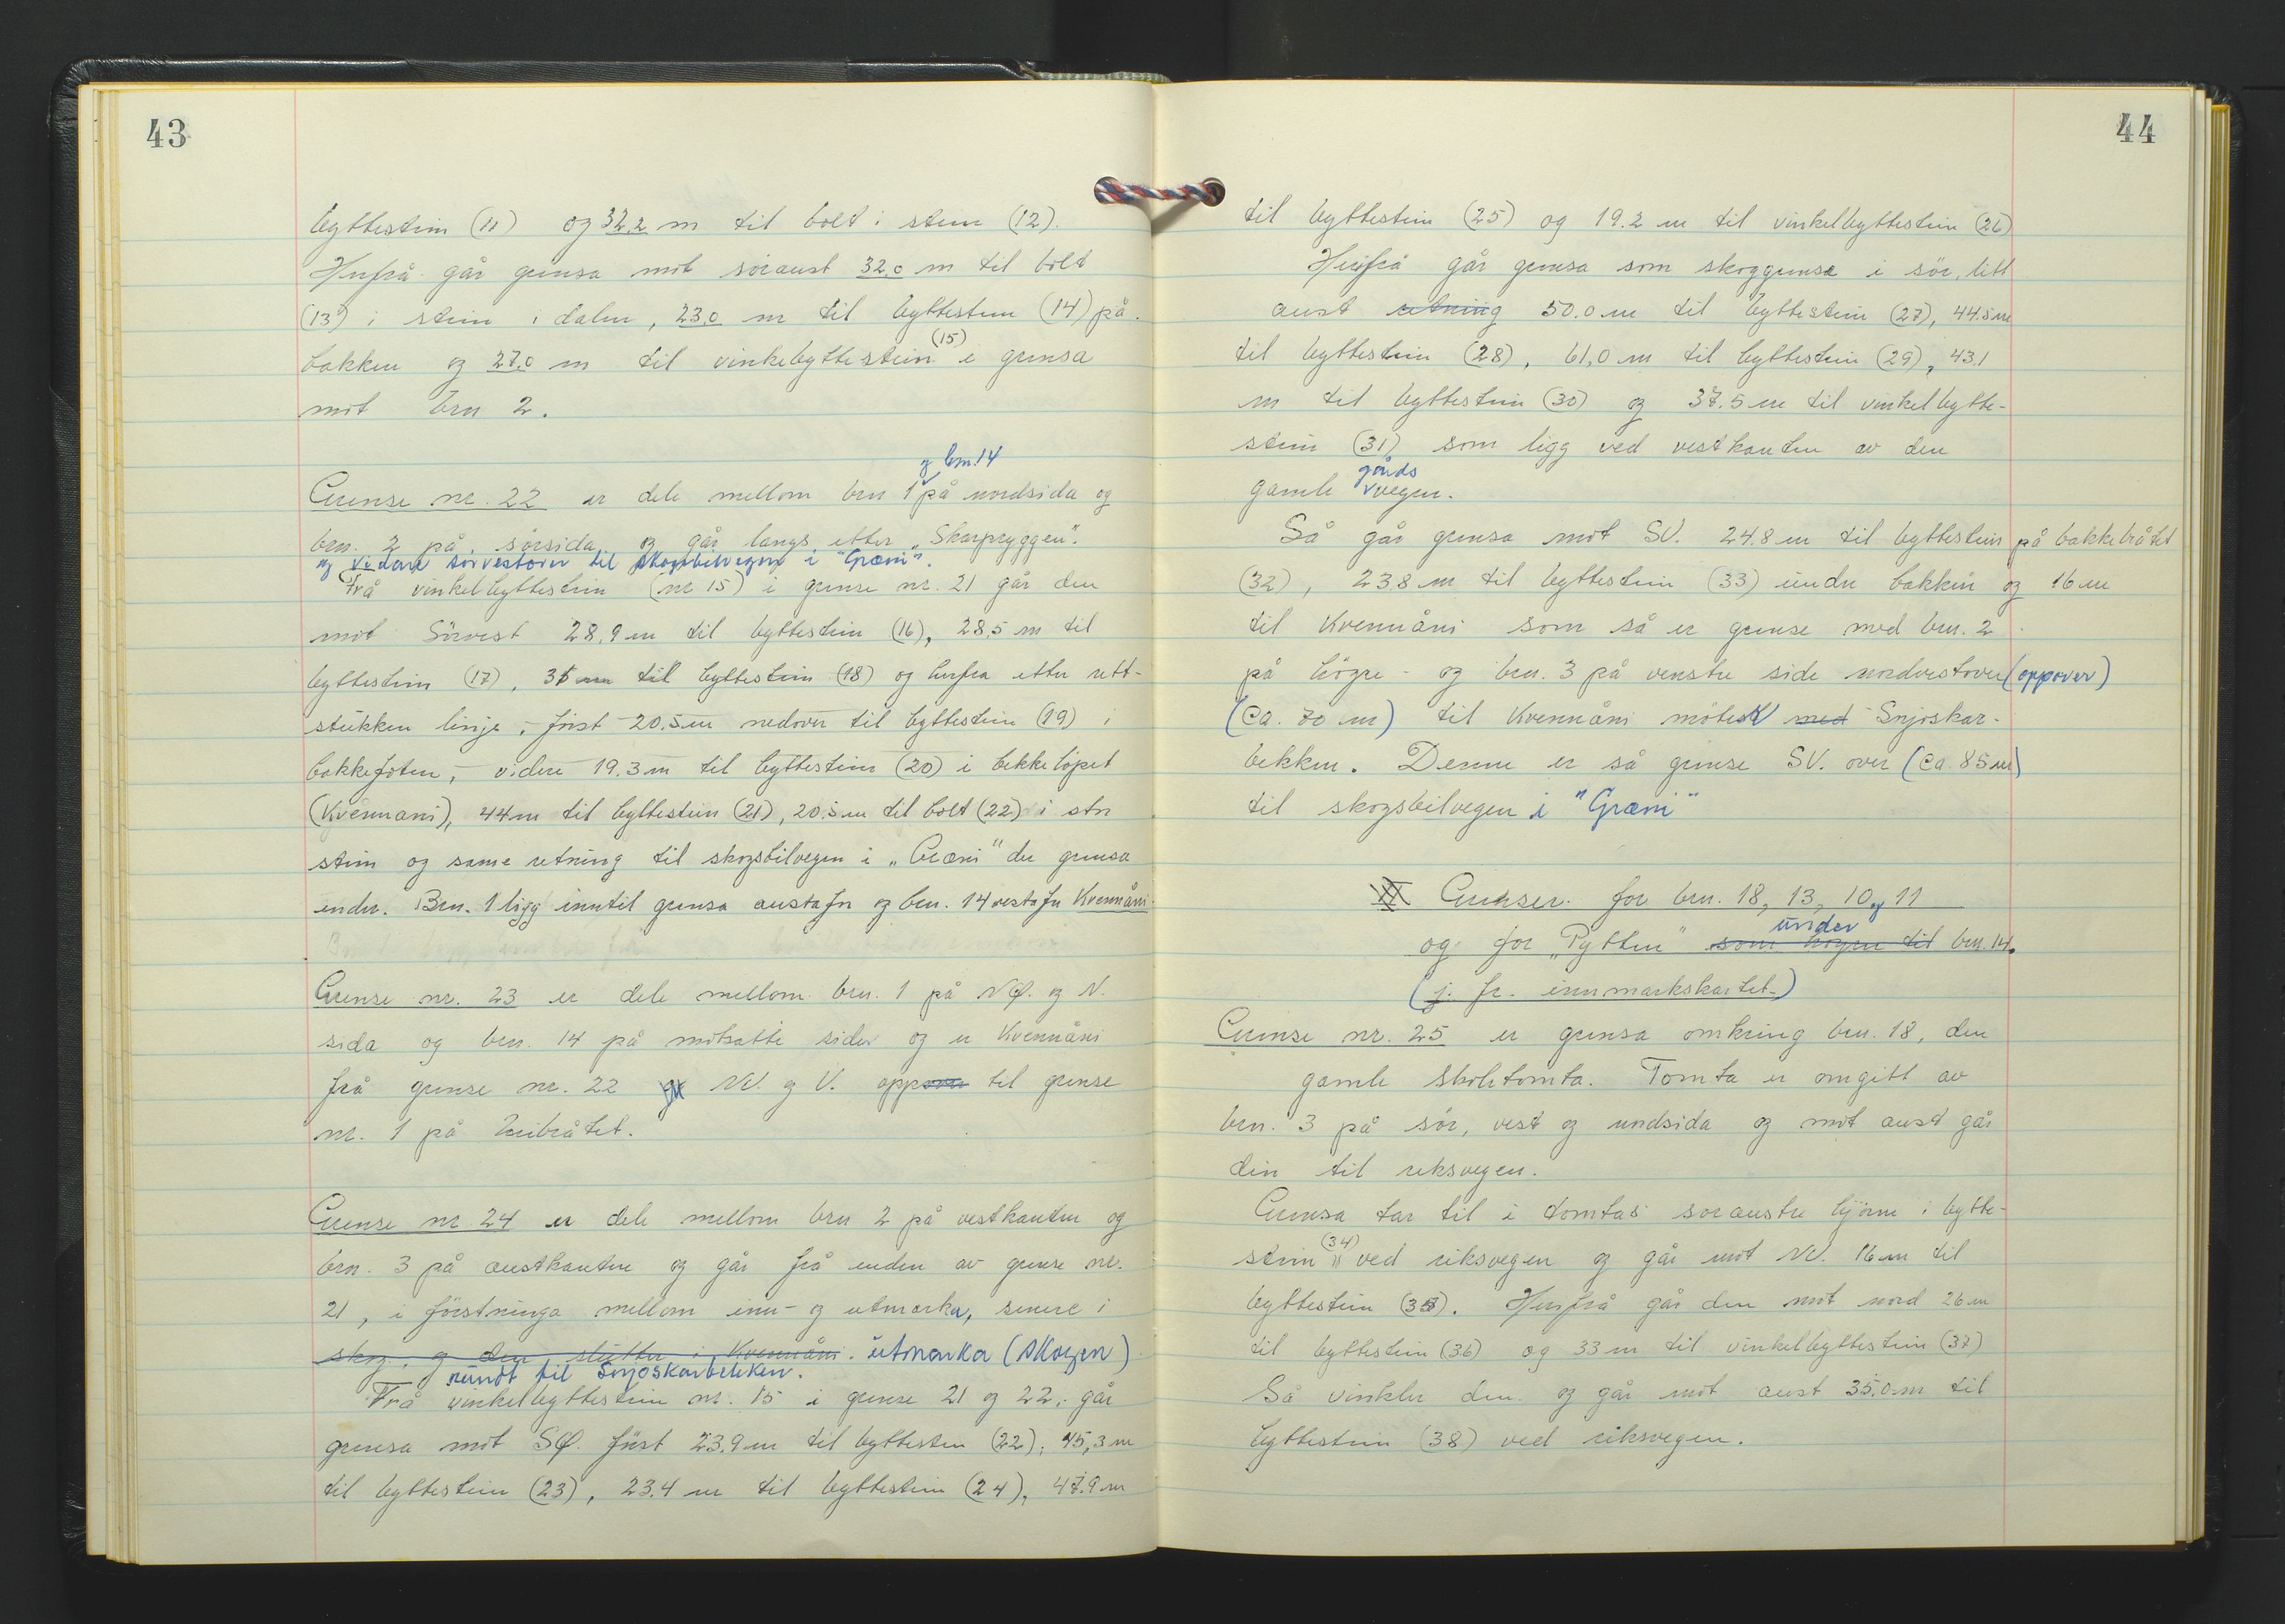 43
byttestein (11) og 32,2 m til bolt i stein (12).
Herfrå går grensa mot søraust 32,0 m til bolt
(13) i stein i dalen, 23,0 m til byttestein (14) på
bakken og 27,0 m til vinkelbyttestein (15) i grensa
mot brn 2.
og brn. 14
Grense nr. 22 er dele mellom brn 1 på nordsida og
brn. 2 på sørsida og går langs etter „Skarpryggen".
og vidare sørvestover til skogsbilvegen i "Græni".
Frå vinkelbyttestein (nr 15) i grense nr. 21 går den
mot Sörvest 28,9 m til byttestein (16), 28,5 m til
byttestein (17), 31 m til byttestein (18) og herfra etter rett-
stukken linje, først 20.5 m nedover til byttestein (19) i
bakkefoten, videre 19.3 m til byttestein (20) i bekkelöpet
(Kvennåni), 44 m til byttestein (21), 20.5 m til bolt (22) i stor
stein og same retning til skogsbilvegen i „Græni" der grensa
ender. Brn. 1 ligg inntil grensa austafor og brn. 14 vestafor Kvennåni.
Grense nr. 23 er dele mellom brn. 1 på NØ. og N.
sida og brn. 14 på motsatte sider og er Kvennåni
frå grense nr. 22 NV. og V. oppover til grense
nr. 1 på Heibråtet.
Grense nr 24 er dele mellom brn 2 på vestkanten og
brn. 3 på austkanten og går frå enden av grense nr.
21, i förstninga mellom inn- og utmarka, senere i
skog, og den slutter i Kvennåni. utmarka (skogen)
rundt til Snjoskarbekken.
Frå vinkelbyttestein nr. 15 i grense 21 og 22, går
grensa mot SØ. først 23.9 m til byttestein (22), 45,3 m
til byttestein (23), 23.4 m til byttestein (24), 47.9 m
44
til byttestein (25) og 19.2 m til vinkelbyttestein (26)
Herifrå går grensa som skoggrense i sör, litt
aust retning 50.0 m til byttestein (27), 44.5 m
til byttestein (28), 61,0 m til byttestein (29), 43.1
m til byttestein (30) og 37.5 m til vinkelbytte-
stein (31) som ligg ved vestkanten av den
gards
gamle vegen.
Så går grensa mot SV. 24.8 m til byttestein på bakkebråtet
(32), 23.8 m til byttestein (33) under bakken og 16 m
til Kvennåni som så er grense med brn. 2
på högre - og brn. 3 på venstre side nordvestover (oppover)
(ca. 70 m) til Kvennåni möter med Snjoskar-
bekken. Denne er så grense SV. over (ca 85 m)
til skogsbilvegen i "Græni"
VI Grenser for brn. 18, 13, 10 og 11
under
og for „Pytten" som høyrer til brn. 14.
(j. fr. innmarkskartet.)
Grense nr. 25 er grensa omkring brn. 18, den
gamle skoletomta. Tomta er omgitt av
brn. 3 på sør, vest og nordsida og mot aust går
din til riksvegen.
Grensa tar til i tomtas søraustre hjörne i bytte-
stein (34) ved riksvegen og går mot NV. 16 m til
byttestein (35). Herfrå går den mot nord 26 m
til byttestein (36) og 33 m til vinkelbyttestein (37)
Så vinkler den og går mot aust 35.0 m til
byttestein (38) ved riksvegen.